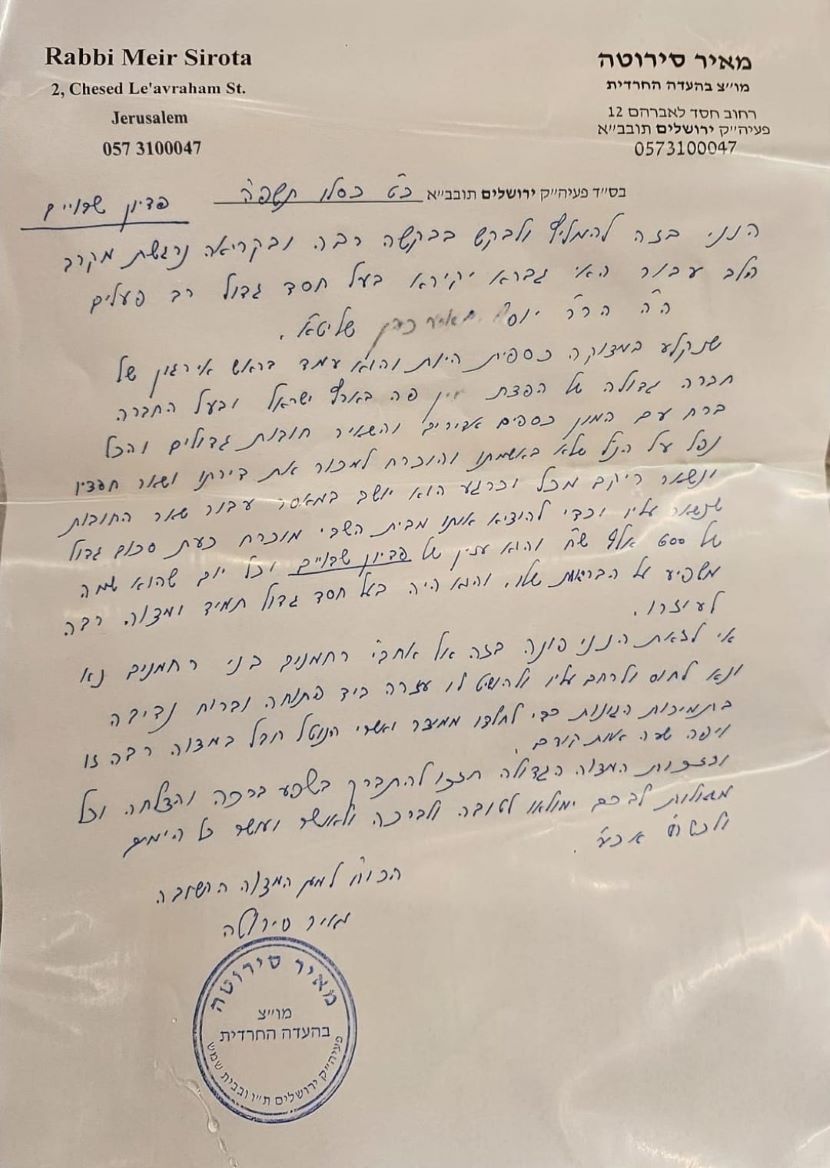 Rabbi Meir Sirota
2, Chesed Le'avraham St.
Jerusalem
057 3100047
מאיר סירוטה
מו״צ בהעדה החרדית
רחוב חסד לאברהם 12
פעיה״ק ירושלים תובב״א
0573100047
בס״ד פעיה״ק ירושלים תובב״א כ״ט כסלו תשפ״ה
פדיון שבויים
הנני בזה להמליץ ולבקש בבקשה רבה ובקריאה נרגשת מקרב
הלב עבור האי גברא יקירא בעל חסד גדול רב פעלים
ה״ה הר״ר יוסף שליט״א.
שנקלע במצוקה כספית היות והוא עמד בראש אירגון של
חברה גדולה של הפצת יין פה בארץ ישראל ובעל החברה
ברח עם המון כספים אדירים והשאיר חובות גדולים והכל
נפל על הנ״ל שלא באשמתו והוכרח למכור את דירתו ושאר חפציו
ונשאר ריקם מכל וכרגע הוא יושב במאסר עבור שאר החובות
שנשאר עליו וכדי להוציא אותו מבית השבי מוכרח כעת סכום גדול
של אלף ש״ח והוא ענין של פדיון שבויים וכל יום שהוא שמה
משפיע על הבריאות שלו. והוא היה בעל חסד גדול תמיד ומצוה רבה
לעוזרו.
אי לזאת הנני פונה בזה אל אחב״י רחמנים בני רחמנים נא
ונא לחוס ולרחם עליו ולהושיט לו עזרה ביד פתוחה וברוח נדיבה
בתמיכות הגונות כדי לחלצו ממיצר ואשרי הנוטל חבל במצוה רבה זו
ויפה שעה אחת קודם.
ובזכות המצוה הגדולה תזכו להתברך בשפע ברכה והצלחה וכל
משאלות לבכם ימולאו לטובה ולברכה ולאושר ועושר כל הימים
הכו״ח למען המצוה החשובה
מאיר סירוטה
מאיר סירוטה
מו״צ
בהעדה החרדית
פעיה״ק ירושלים ת״ו ובבית שמש